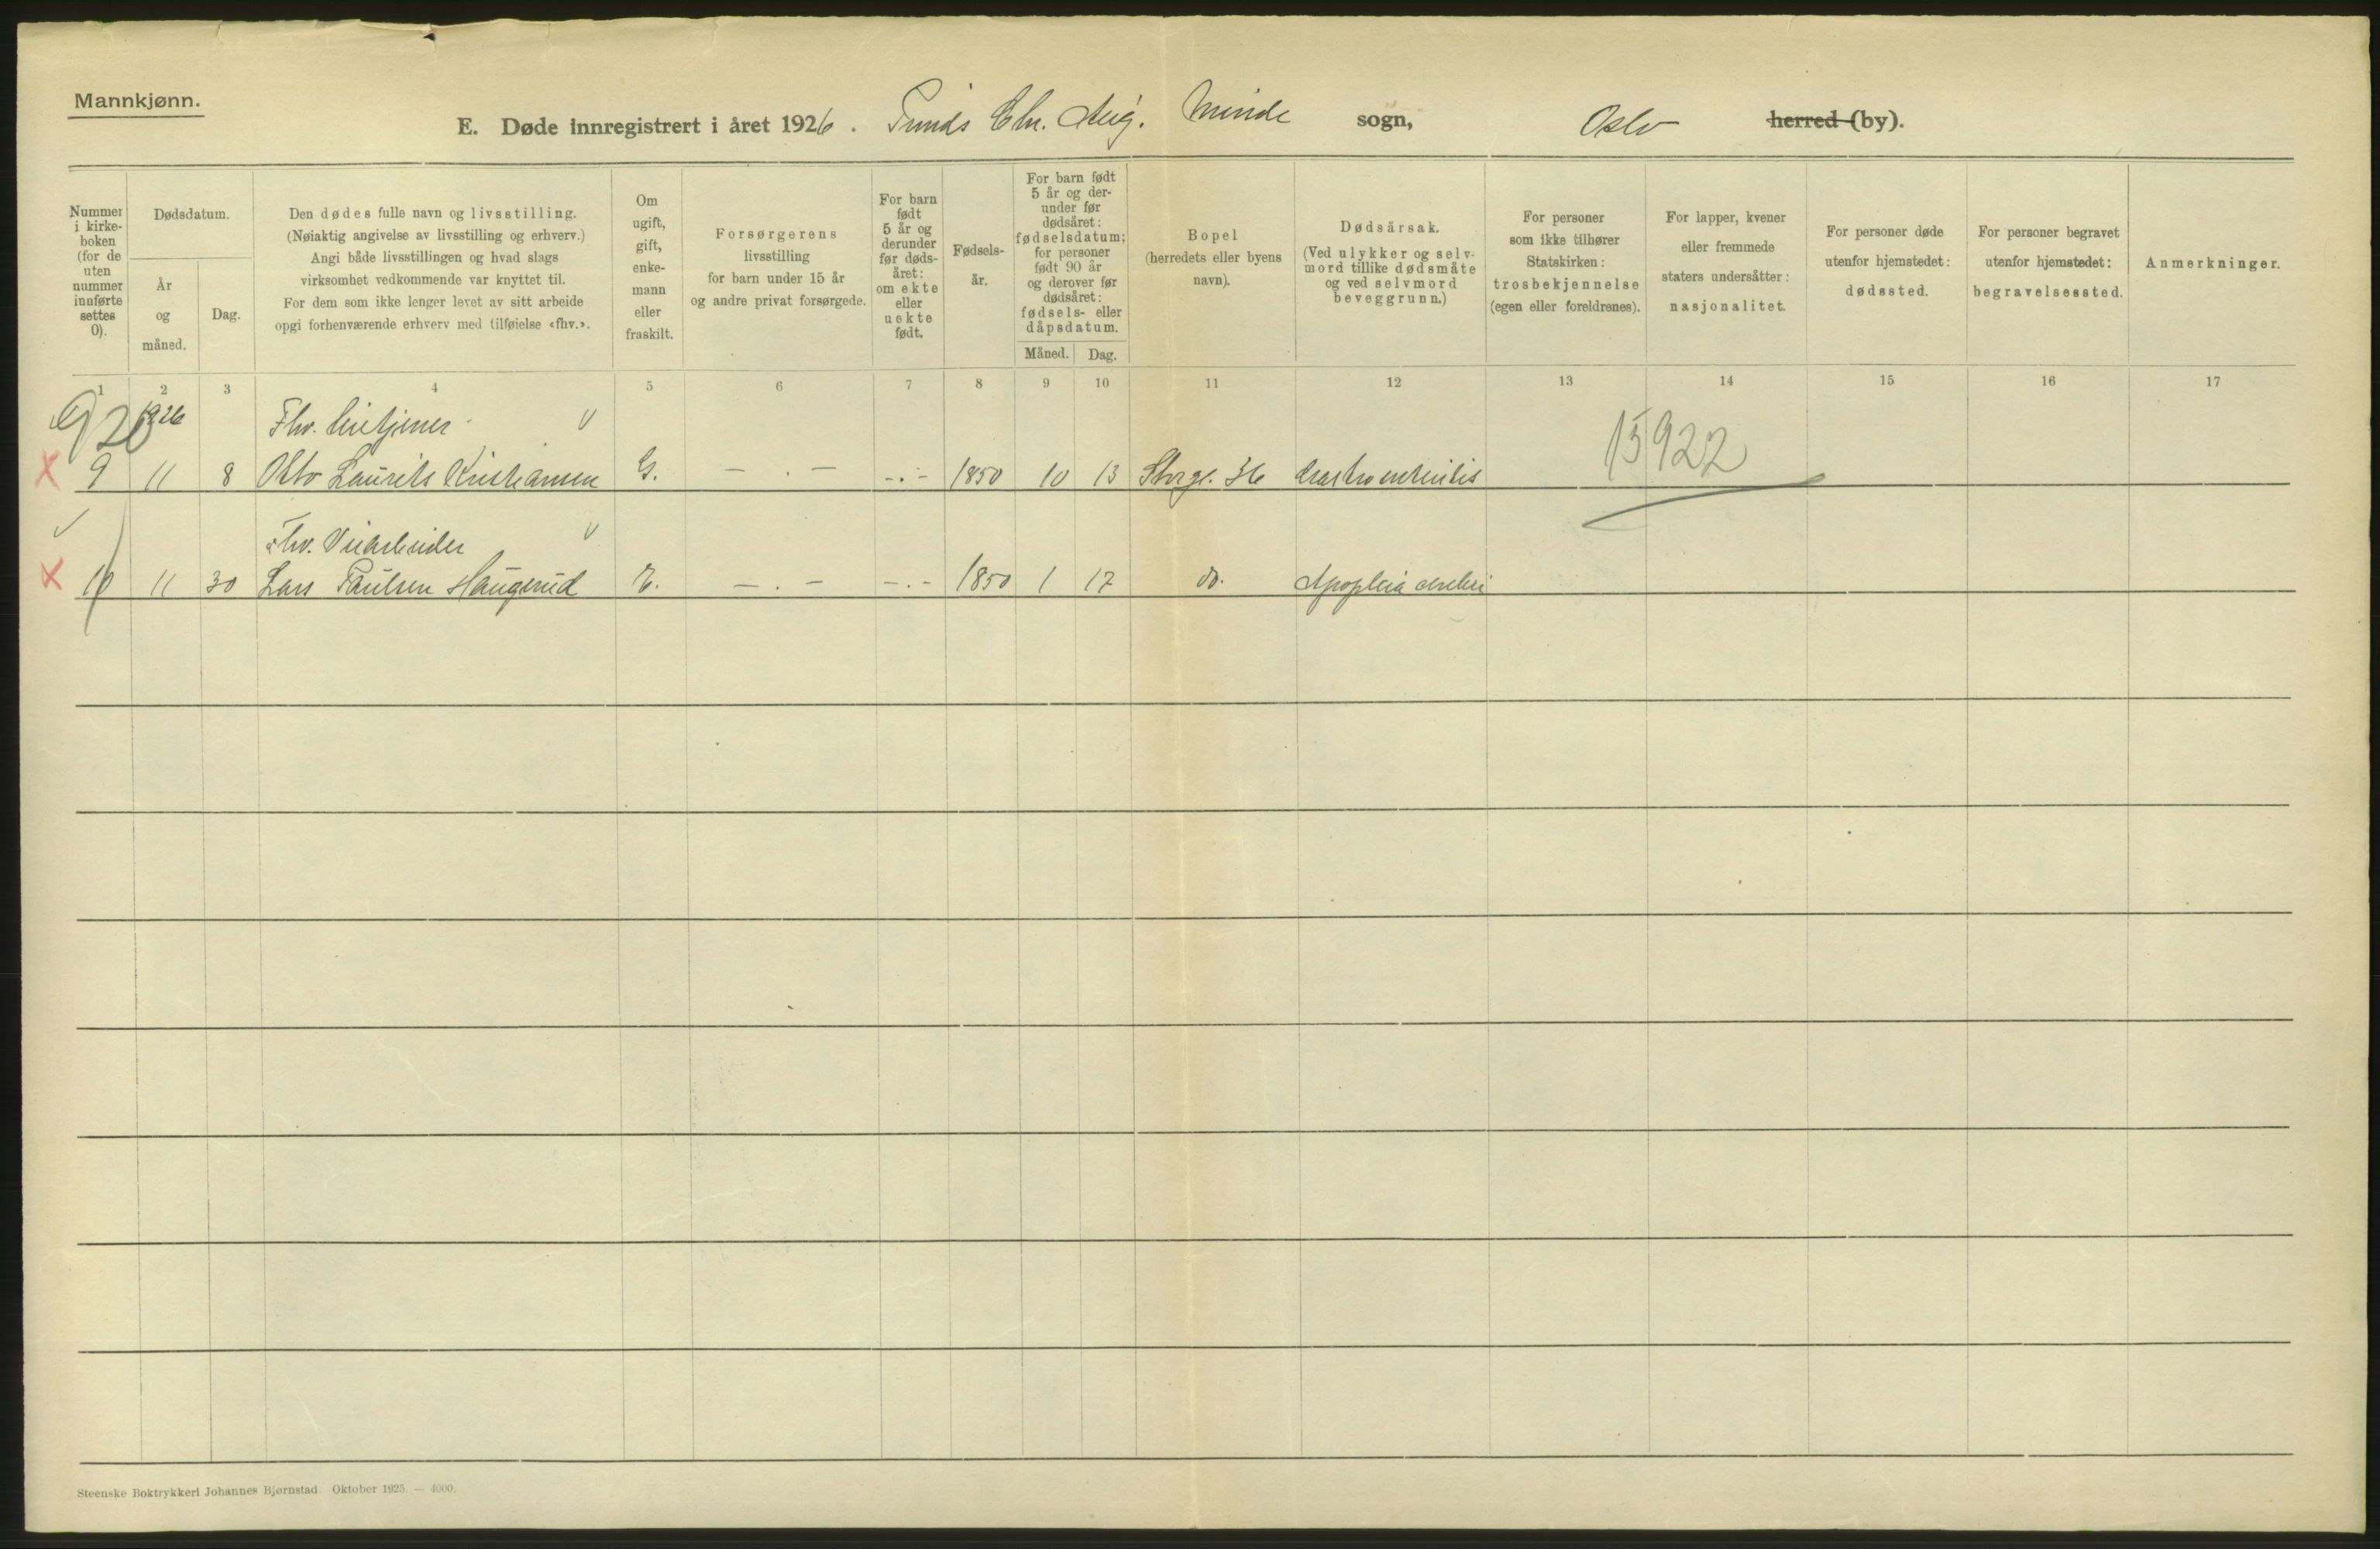 Mannkjønn.
E. Døde innregistrert i året 1926. Prinds Chr. Aug. Minde sogn, Oslo herred (by).
Nummer i kirkeboken (for de uten nummer innførte settes 0).
Dødsdatum.
År og måned.
Dag.
Den dødes fulle navn og livsstilling.
(Nøiaktig angivelse av livsstilling og erhverv.)
Angi både livsstillingen og hvad slags
virksomhet vedkommende var knyttet til.
For dem som ikke lenger levet av sitt arbeide
opgi forhenværende erhverv med tilføielse «fhv.».
Om ugift, gift, enkemann eller fraskilt.
Forsørgerens
livsstilling
for barn under 15 år
og andre privat forsørgede.
For barn født 5 år og derunder før dødsåret: om ekte eller uekte født.
Fødselsår.
For barn født 5 år og derunder før dødsåret: fødselsdatum; for personer født 90 år og derover før dødsåret: fødsels- eller dåpsdatum.
Måned. Dag.
Bopel
(herredets eller byens
navn).
Dødsårsak.
(Ved ulykker og selvmord tillike dødsmåte og ved selvmord beveggrunn.)
For personer
som ikke tilhører
Statskirken:
trosbekjennelse
(egen eller foreldrenes).
For lapper, kvener
eller fremmede
staters undersåtter:
nasjonalitet.
For personer døde
utenfor hjemstedet:
dødssted.
For personer begravet
utenfor hjemstedet:
begravelsessted.
Anmerkninger.
1 2 3 4 5 6 7 8 9 10 11 12 13 14 15 16 17
920 1926 Fhv. 15922
9 11 8 Otto Laurits Kristiansen G. — . — - . - 1850 10 13 Storgt. 36
Fhv.
10 11 30 Lars Paulsen Haugerud E. — . — — . - 1850 1 17 do. Apoplexia cerebri
Steenske Boktrykkeri Johannes Bjørnstad. Oktober 1925. — 4000.